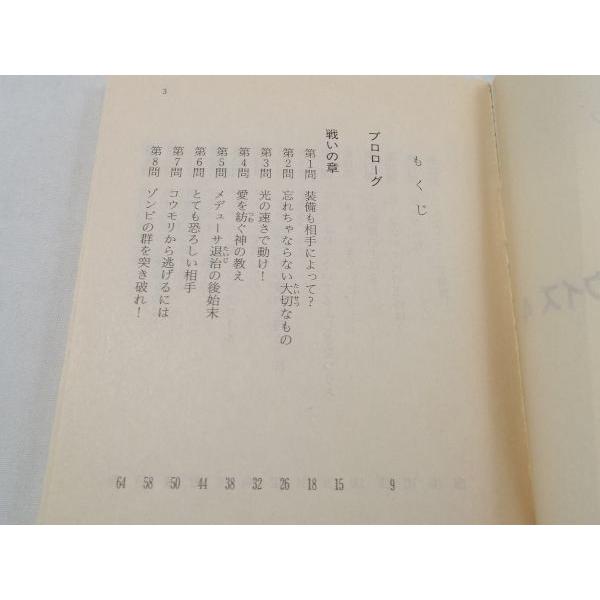 もくじ
プロローグ 9
戦いの章 15
第1問 装備も相手によって? 18
第2問 忘れちゃならない大切なもの 26
たいせつ
第3問 光の速さで動け! 32
第4問 愛を紡ぐ神の教え 38
つむ
第5問 メデューサ退治の後始末 44
たいじ
第6問 とても恐ろしい相手 50
第7問 コウモリから逃げるには 58
第8問 ゾンビの群を突き破れ! 64
3
ウイズ